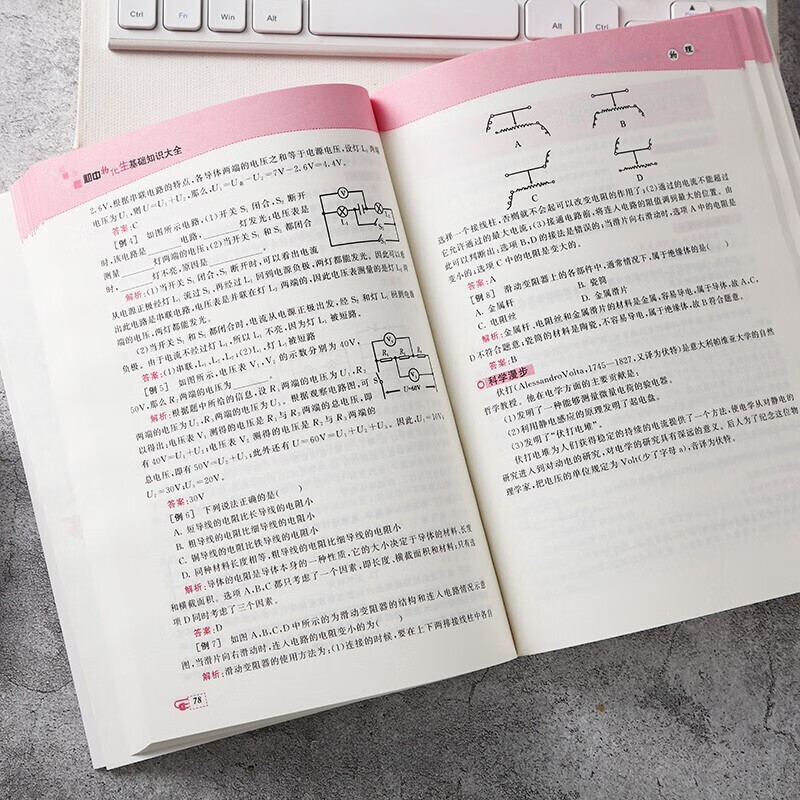 Ctrl
Fn
Win
Alt
Alt
Ctrl
初中物化生基础知识大全
2.6V,根据串联电路的特点,各导体两端的电压之和等于电源电压,设灯L₁两端
电压为U₁,则U=U₁+U₂,那么,U₁=U总-U₂=7V-2.6V=4.4V。
答案:C
[例4] 如图所示电路,(1)开关S₁闭合,S₂断开
时,该电路是________电路,________灯发光;电压表是
测量________灯两端的电压;(2)当开关S₁和S₂都闭合
时,________灯不亮,原因是________。
解析:(1)当开关S₁闭合,S₂断开时,可以看出电流
从电源正极经灯L₁流过S₁,再经过L₂回到电源负极,两灯都能发光。因此可以看
出此电路是串联电路,电压表是并联在灯L₁两端的,因此电压表测量的是灯L₁两
端的电压,两灯都能发光。
(2)当开关S₁和S₂都闭合时,电流从电源正极出发,经S₂和灯L₂回到电源
负极。由于电流不经过灯L₁,所以L₁不亮,因为灯L₁被短路
答案:(1)串联,L₁、L₂,L₁;(2)L₁,灯L₁被短路
[例5] 如图所示,电压表V₁、V₂的示数分别为40V、
50V,那么R₂两端的电压为________。
解析:根据题中所给的信息,设R₁两端的电压为U₁,R₂
两端的电压为U₂,R₃两端的电压为U₃。根据观察电路图,可
以得出:电压表V₁测得的电压是R₁与R₂两端的总电压,即
有40V=U₁+U₂;电压表V₂测得的电压是R₂与R₃两端的
总电压,即有50V=U₂+U₃;此外还有U=60V=U₁+U₂+U₃。因此,U₁=10V;
U₂=30V;U₃=20V。
答案:30V
[例6] 下列说法正确的是( )
A. 短导线的电阻比长导线的电阻小
B. 粗导线的电阻比细导线的电阻小
C. 铜导线的电阻比铁导线的电阻小
D. 同种材料长度相等,粗导线的电阻比细导线的电阻小
解析:导体的电阻是导体本身的一种性质,它的大小决定于导体的材料、长度
和横截面积。选项A、B、C都只考虑了一个因素,即长度、横截面积和材料;只有选
项D同时考虑了三个因素。
答案:D
[例7] 如图A、B、C、D中所示的为滑动变阻器的结构和连入电路情况示意
图,当滑片向右滑动时,连入电路的电阻变小的为( )
解析:滑动变阻器的使用方法为:(1)连接的时候,要在上下两排接线柱中各自
78
V
L₁
L₂
S₁
S₂
V₂
R₁
R₂
R₃
V₁
U=60V
物理
A
B
C
D
选择一个接线柱,否则就不会起可以改变电阻的作用了;(2)通过的电流不能超过
它允许通过的最大电流;(3)接通电路前,将连入电路的阻值调到最大的位置。由
此可以判断出:选项B、D的接法是错误的,当滑片向右滑动时,选项A中的电阻是
变小的;选项C中的电阻是变大的。
答案:A
[例8] 滑动变阻器上的各部件中,通常情况下,属于绝缘体的是( )
A. 金属杆
B. 瓷筒
C. 电阻丝
D. 金属滑片
解析:金属杆、电阻丝和金属滑片的材料是金属,容易导电,属于导体,故A、C、
D不符合题意;瓷筒的材料是陶瓷,不容易导电,属于绝缘体,故B符合题意。
答案:B
科学漫步
伏打(AlessandroVolta,1745—1827,又译为伏特)是意大利帕维亚大学的自然
哲学教授。他在电学方面的主要贡献是:
(1)发明了一种能够测量微量电荷的验电器。
(2)利用静电感应的原理发明了起电盘。
(3)发明了“伏打电堆”。
伏打电堆为人们获得稳定的持续的电流提供了一个方法,使电学从对静电的
研究进入到对动电的研究,对电学的研究具有深远的意义。后人为了纪念这位物
理学家,把电压的单位规定为Volt(少了字母a),音译为伏特。